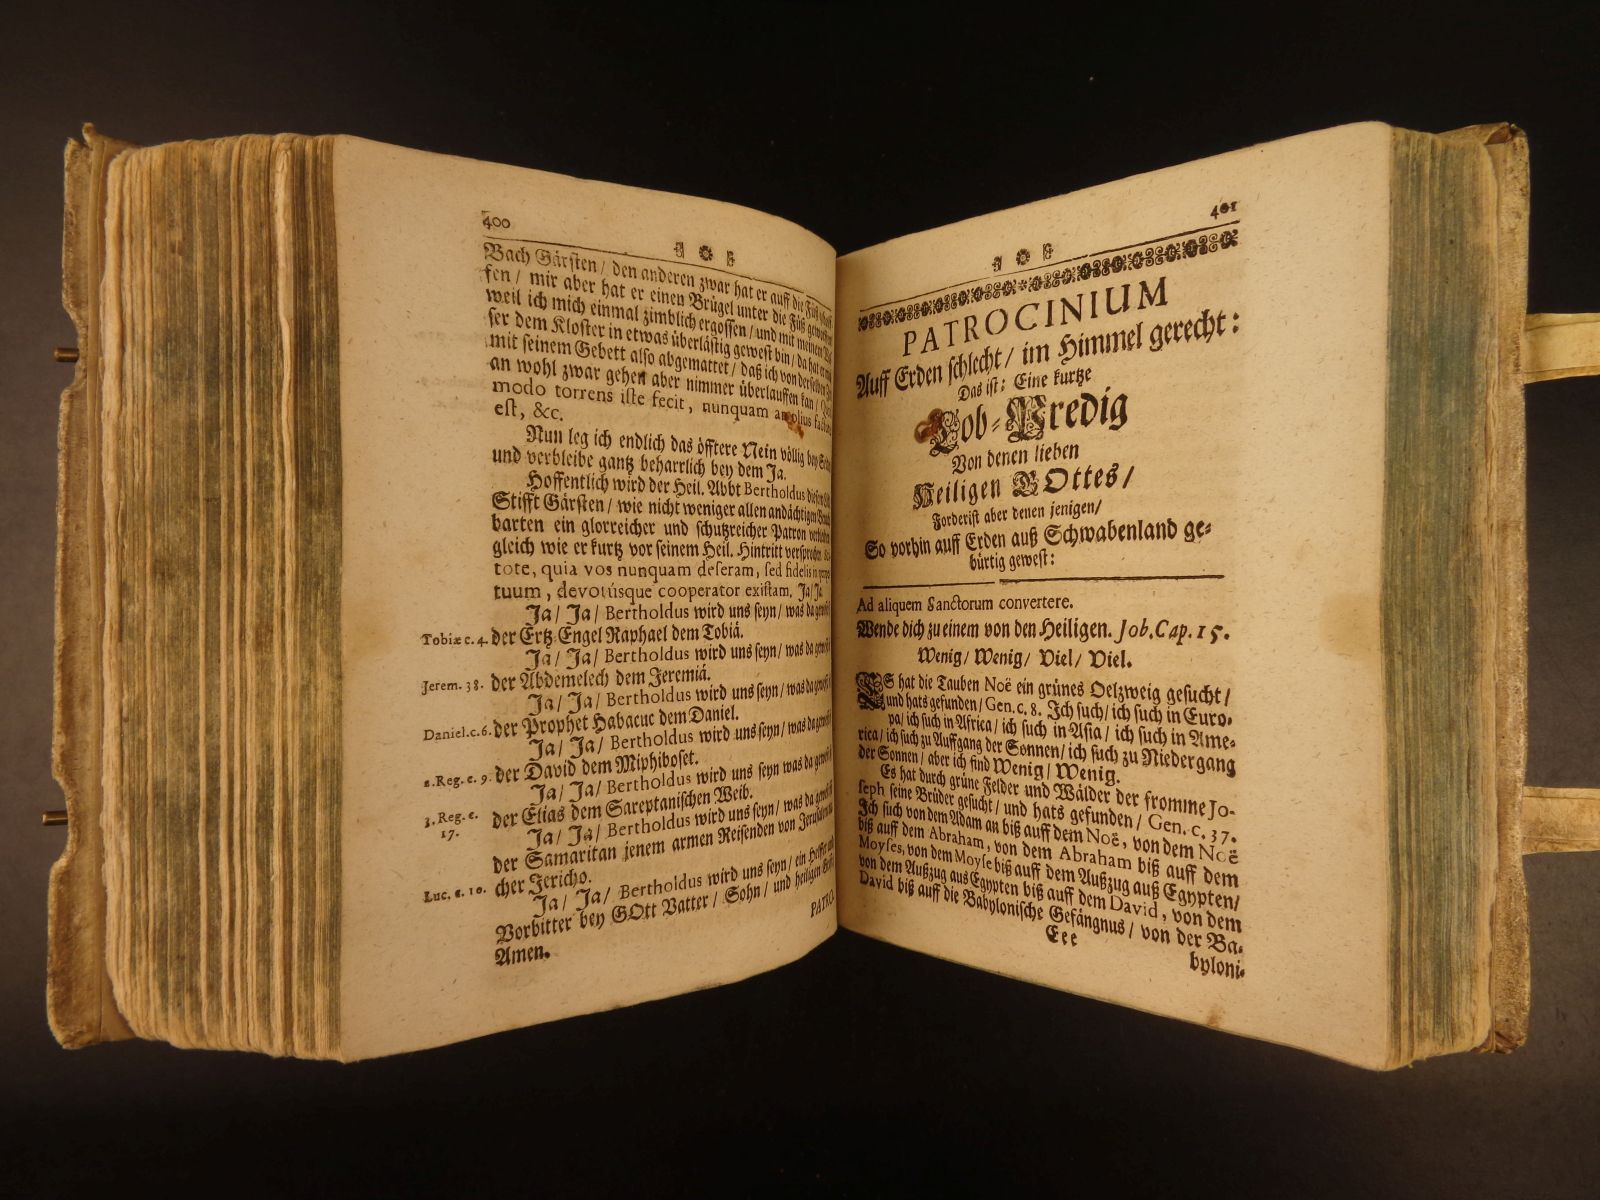 400
Bach Gärsten / den anderen zwar hat er auff die Füß
fen / mir aber hat er einen Brügel unter die Füß geworffen
weil ich mich einmal zimblich ergossen / und mit meinem
ser dem Kloster in etwas überlästig gewest bin / da hat er mich
mit seinem Gebett also abgemattet / daß ich von derselben Zeit
an wohl zwar gehen aber nimmer überlauffen kan /
modo torrens iste fecit, nunquam amplius
est, &c.
Nun leg ich endlich das öfftere Nein völlig bey
und verbleibe gantz beharrlich bey dem Ja.
Hoffentlich wird der Heil. Abbt Bertholdus diesem
Stifft Gärsten / wie nicht weniger allen andächtigen
barten ein glorreicher und schutzreicher Patron
gleich wie er kurtz vor seinem Heil. Hintritt versprochen
tote, quia vos nunquam deseram, sed fidelis
tuum, devotúsque cooperator existam. Ja / Ja
Ja / Ja / Bertholdus wird uns seyn / was da gewest
Tobiæ c. 4. der Ertz-Engel Raphael dem Tobiä.
Ja / Ja / Bertholdus wird uns seyn / was da gewest
Jerem. 38. der Abdemelech dem Jeremiä.
Ja / Ja / Bertholdus wird uns seyn / was da gewest
Daniel. c. 6. der Prophet Habacuc dem Daniel.
Ja / Ja / Bertholdus wird uns seyn / was da gewest
2. Reg. c. 9. der David dem Miphiboset.
Ja / Ja / Bertholdus wird uns seyn was da gewest
3. Reg. c. 17. der Elias dem Sareptanischen Weib.
Ja / Ja / Bertholdus wird uns seyn / was da gewest
der Samaritan jenem armen Reisenden von Jerusalem
Luc. c. 10. cher Jericho.
Ja / Ja / Bertholdus wird uns seyn / ein Helffer und
Vorbitter bey GOtt Vatter / Sohn / und heiligen Geist
Amen.
PATRO-
401
PATROCINIUM
Auff Erden schlecht / im Himmel gerecht:
Das ist: Eine kurtze
Lob-Predig
Von denen lieben
Heiligen GOttes /
Forderist aber denen jenigen /
So vorhin auff Erden auß Schwabenland ge-
bürtig gewest:
Ad aliquem Sanctorum convertere.
Wende dich zu einem von den Heiligen. Job. Cap. 15.
Wenig / Wenig / Viel / Viel.
ES hat die Tauben Noë ein grünes Oelzweig gesucht /
und hats gefunden / Gen. c. 8. Ich such / ich such in Euro-
pa / ich such in Africa / ich such in Asia / ich such in Ame-
rica / ich such zu Auffgang der Sonnen / ich such zu Niedergang
der Sonnen / aber ich find Wenig / Wenig.
Es hat durch grüne Felder und Wälder der fromme Jo-
seph seine Brüder gesucht / und hats gefunden / Gen. c. 37.
Ich such von dem Adam an biß auff dem Noë, von dem Noë
biß auff dem Abraham, von dem Abraham biß auff dem
Moyses, von dem Moyse biß auff dem Außzug auß Egypten /
von dem Außzug aus Egypten biß auff dem David, von dem
David biß auff die Babylonische Gefängnus / von der Ba-
Eee
byloni-